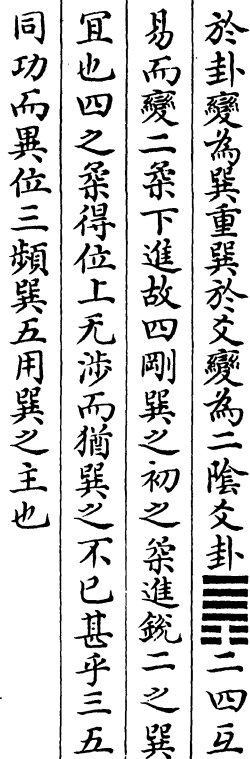 於卦變為巽重巽於爻變為二陰爻卦䷸二四互
易而變二桑下進故四剛巽之初之桑進銳二之巽
冝也四之桑得位上无涉而猶巽之不已甚乎三五
同功而異位三頻巽五用巽之主也